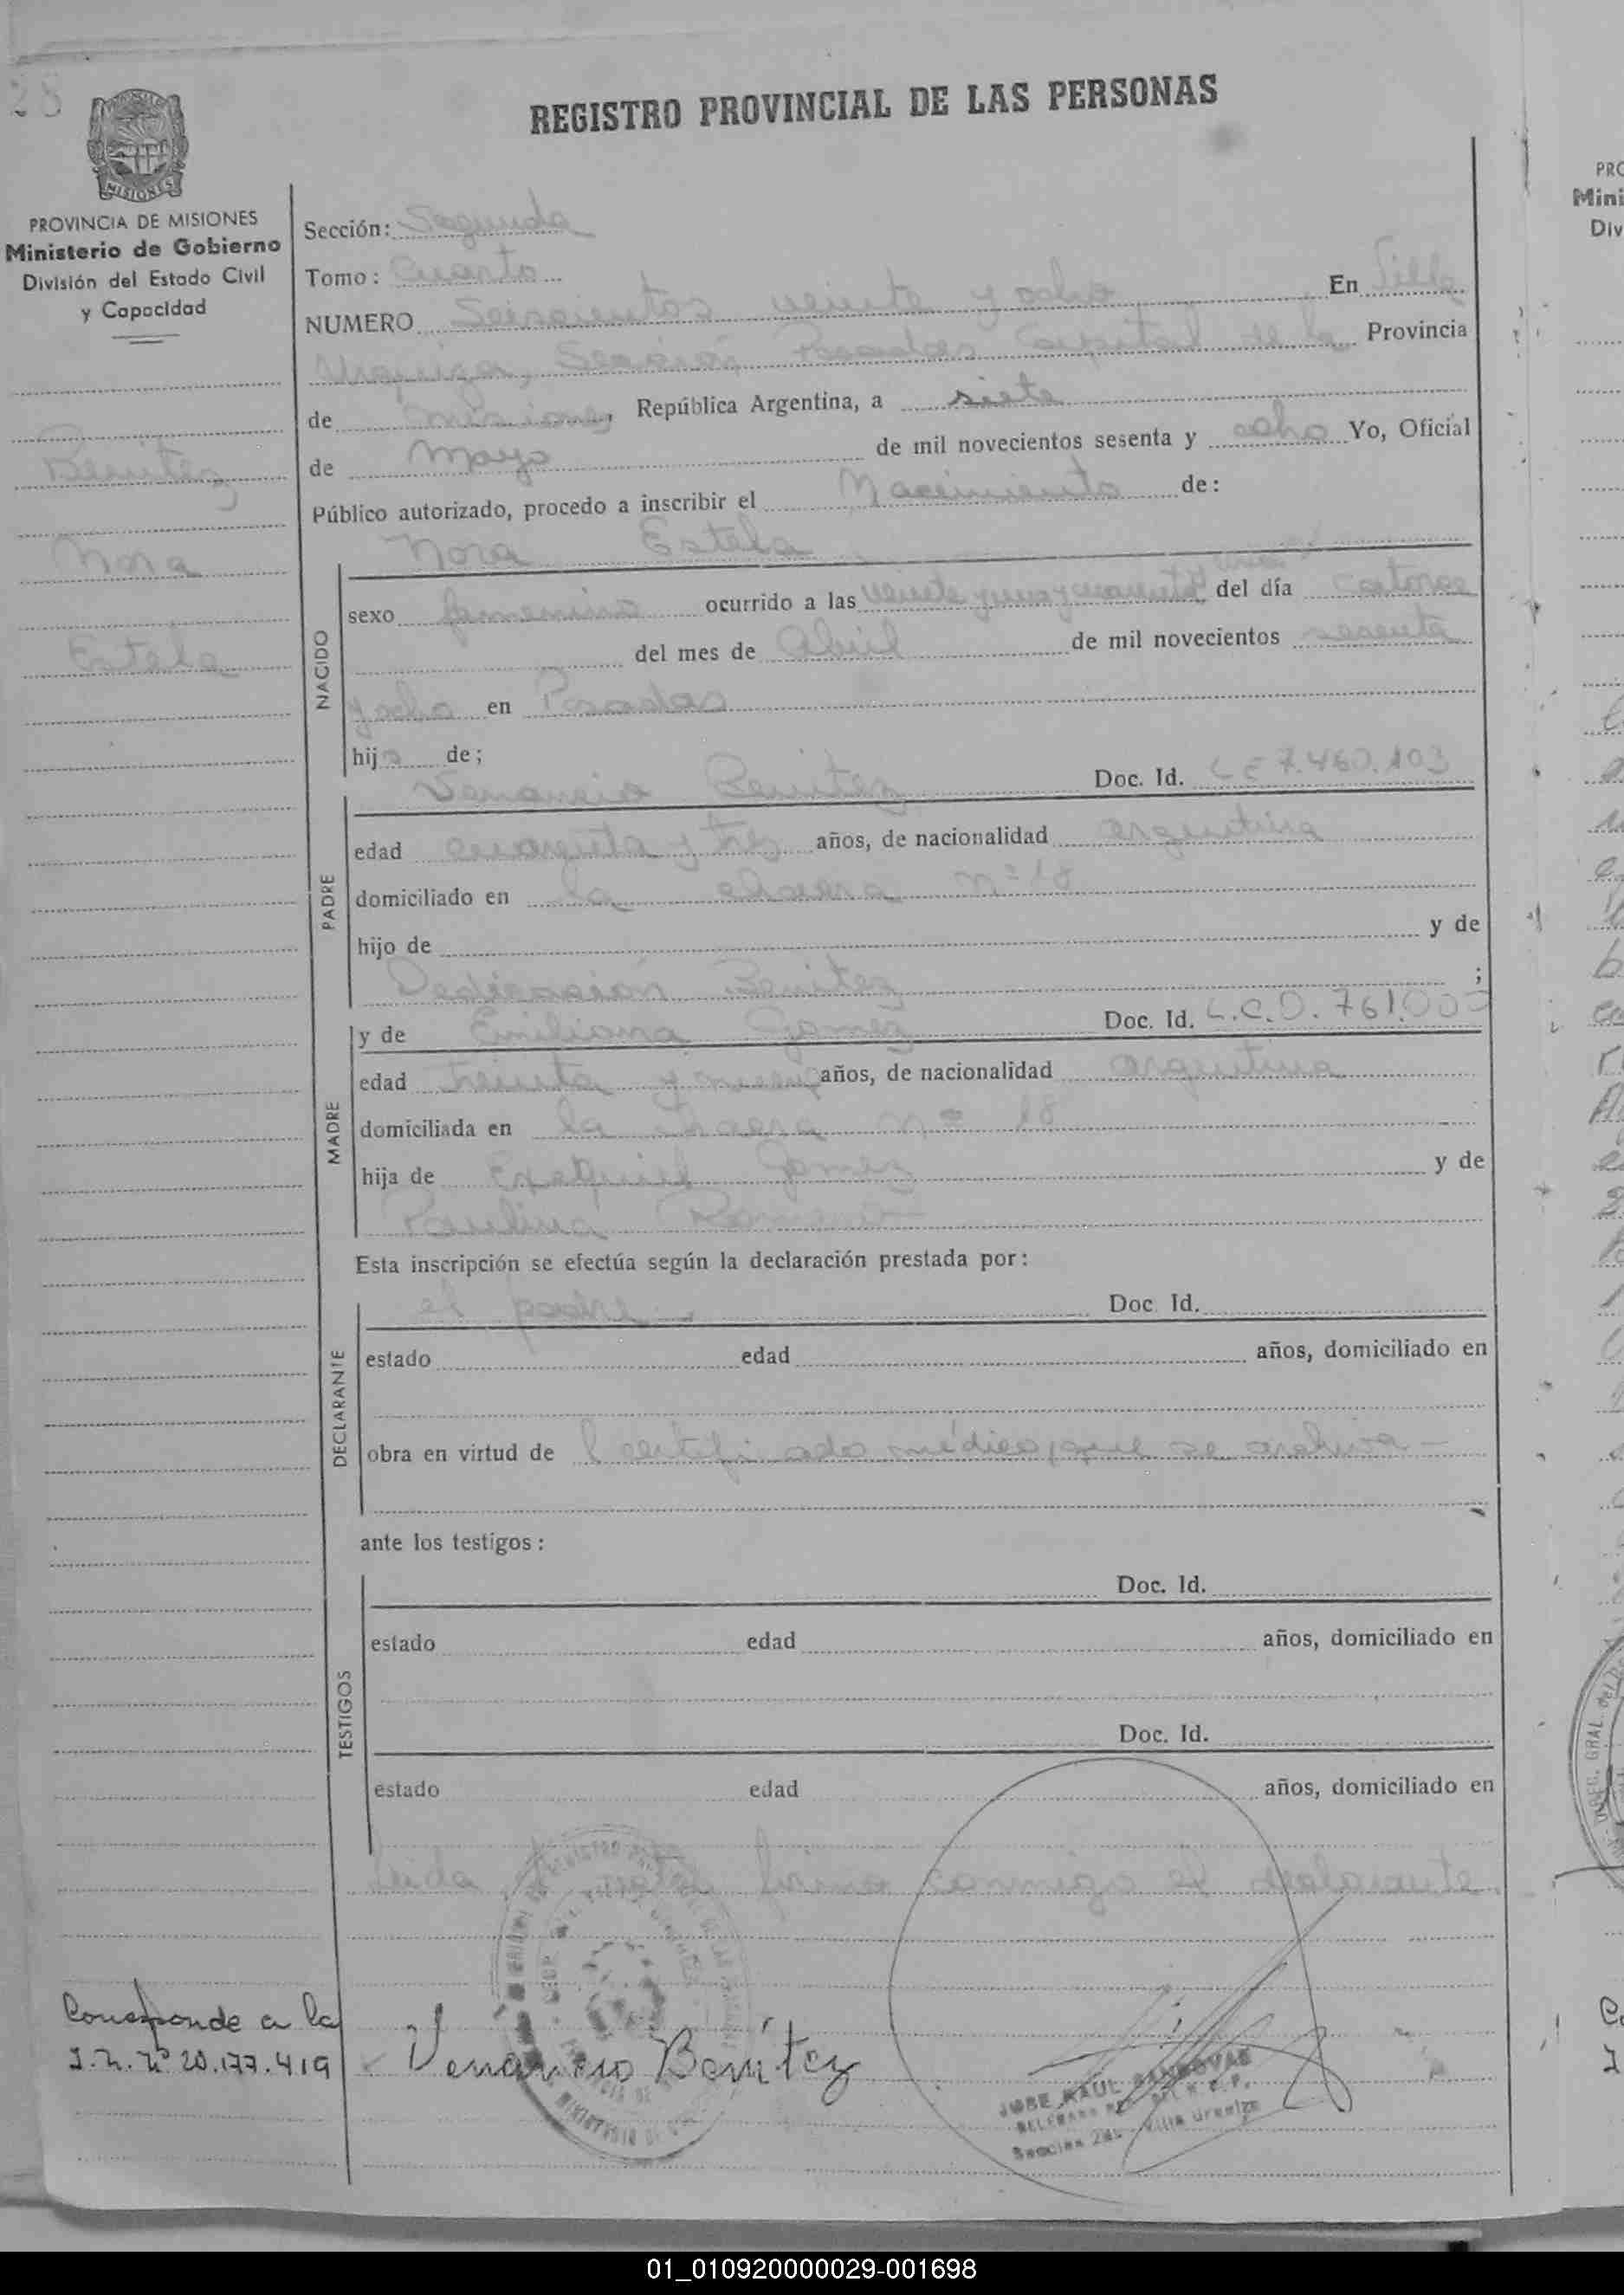 28
REGISTRO PROVINCIAL DE LAS PERSONAS
MISIONES
PROVINCIA DE MISIONES
Ministerio de Gobierno
División del Estado Civil
y Capacidad
Benitez
Nora
Estela
Sección: Segunda
Tomo: Cuarto
NUMERO Seiscientos veinte y ocho En Villa
Urquiza, Sección Posadas Capital de la Provincia
de Misiones, República Argentina, a siete
de Mayo de mil novecientos sesenta y ocho Yo, Oficial
Público autorizado, procedo a inscribir el Nacimiento de:
Nora Estela
NACIDO
sexo femenino ocurrido a las veinte y una y cuarenta del día catorce
del mes de Abril de mil novecientos sesenta
y ocho en Posadas
hija de;
PADRE
Venancio Benitez Doc. Id. LE 7.460.103
edad cuarenta y tres años, de nacionalidad argentina
domiciliado en la chacra nº 18
hijo de y de
Dedicación Benitez ;
MADRE
y de Emiliana Gomez Doc. Id. L.C.0.761.000
edad treinta y nueve años, de nacionalidad argentina
domiciliada en la chacra nº 18
hija de Exequiel Gomez y de
Paulina Romero
Esta inscripción se efectúa según la declaración prestada por:
DECLARANTE
el padre.- Doc Id.
estado edad años, domiciliado en
obra en virtud de l certificado médico, que se archiva -
ante los testigos:
TESTIGOS
Doc. Id.
estado edad años, domiciliado en
Doc. Id.
estado edad años, domiciliado en
Leida el acta, firma conmigo el declarante
Corresponde a la
I.N. Nº 20.177.419
Venancio Benitez
JOSE RAUL SANDOVAL
Seccion 2da. Villa Urquiza
PRO
Mini
Div
01_010920000029-001698